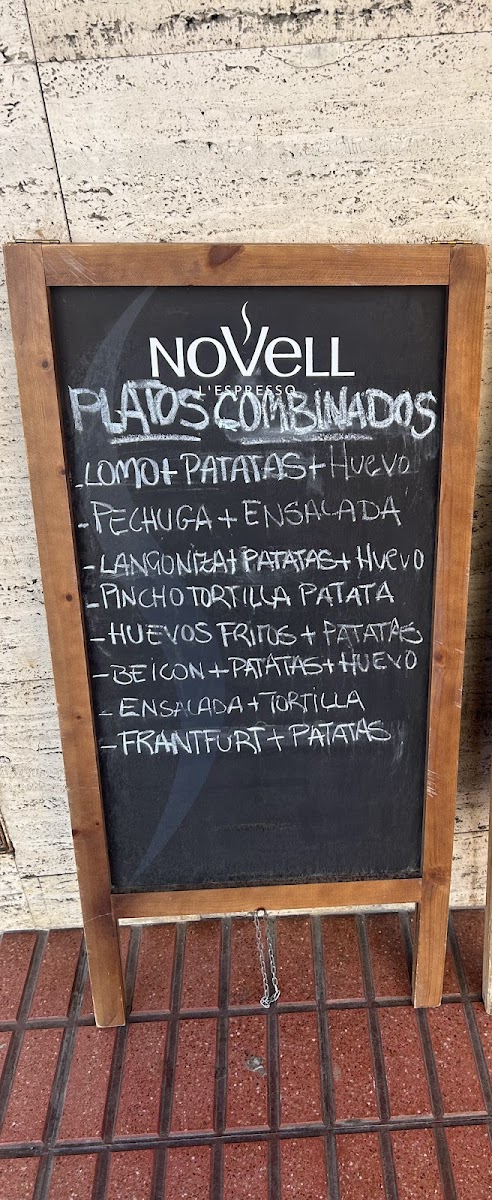 NOVELL
L'ESPRESSO
PLATOS COMBINADOS
-LOMO+ PATATAS+ HUEVO
-PECHUGA + ENSALADA
-LANGONIZA+ PATATAS+ HUEVO
-PINCHO TORTILLA PATATA
-HUEVOS FRITOS + PATATAS
-BEICON+PATATAS+HUEVO
-ENSALADA+TORTILLA
-FRANTFURT+PATATAS